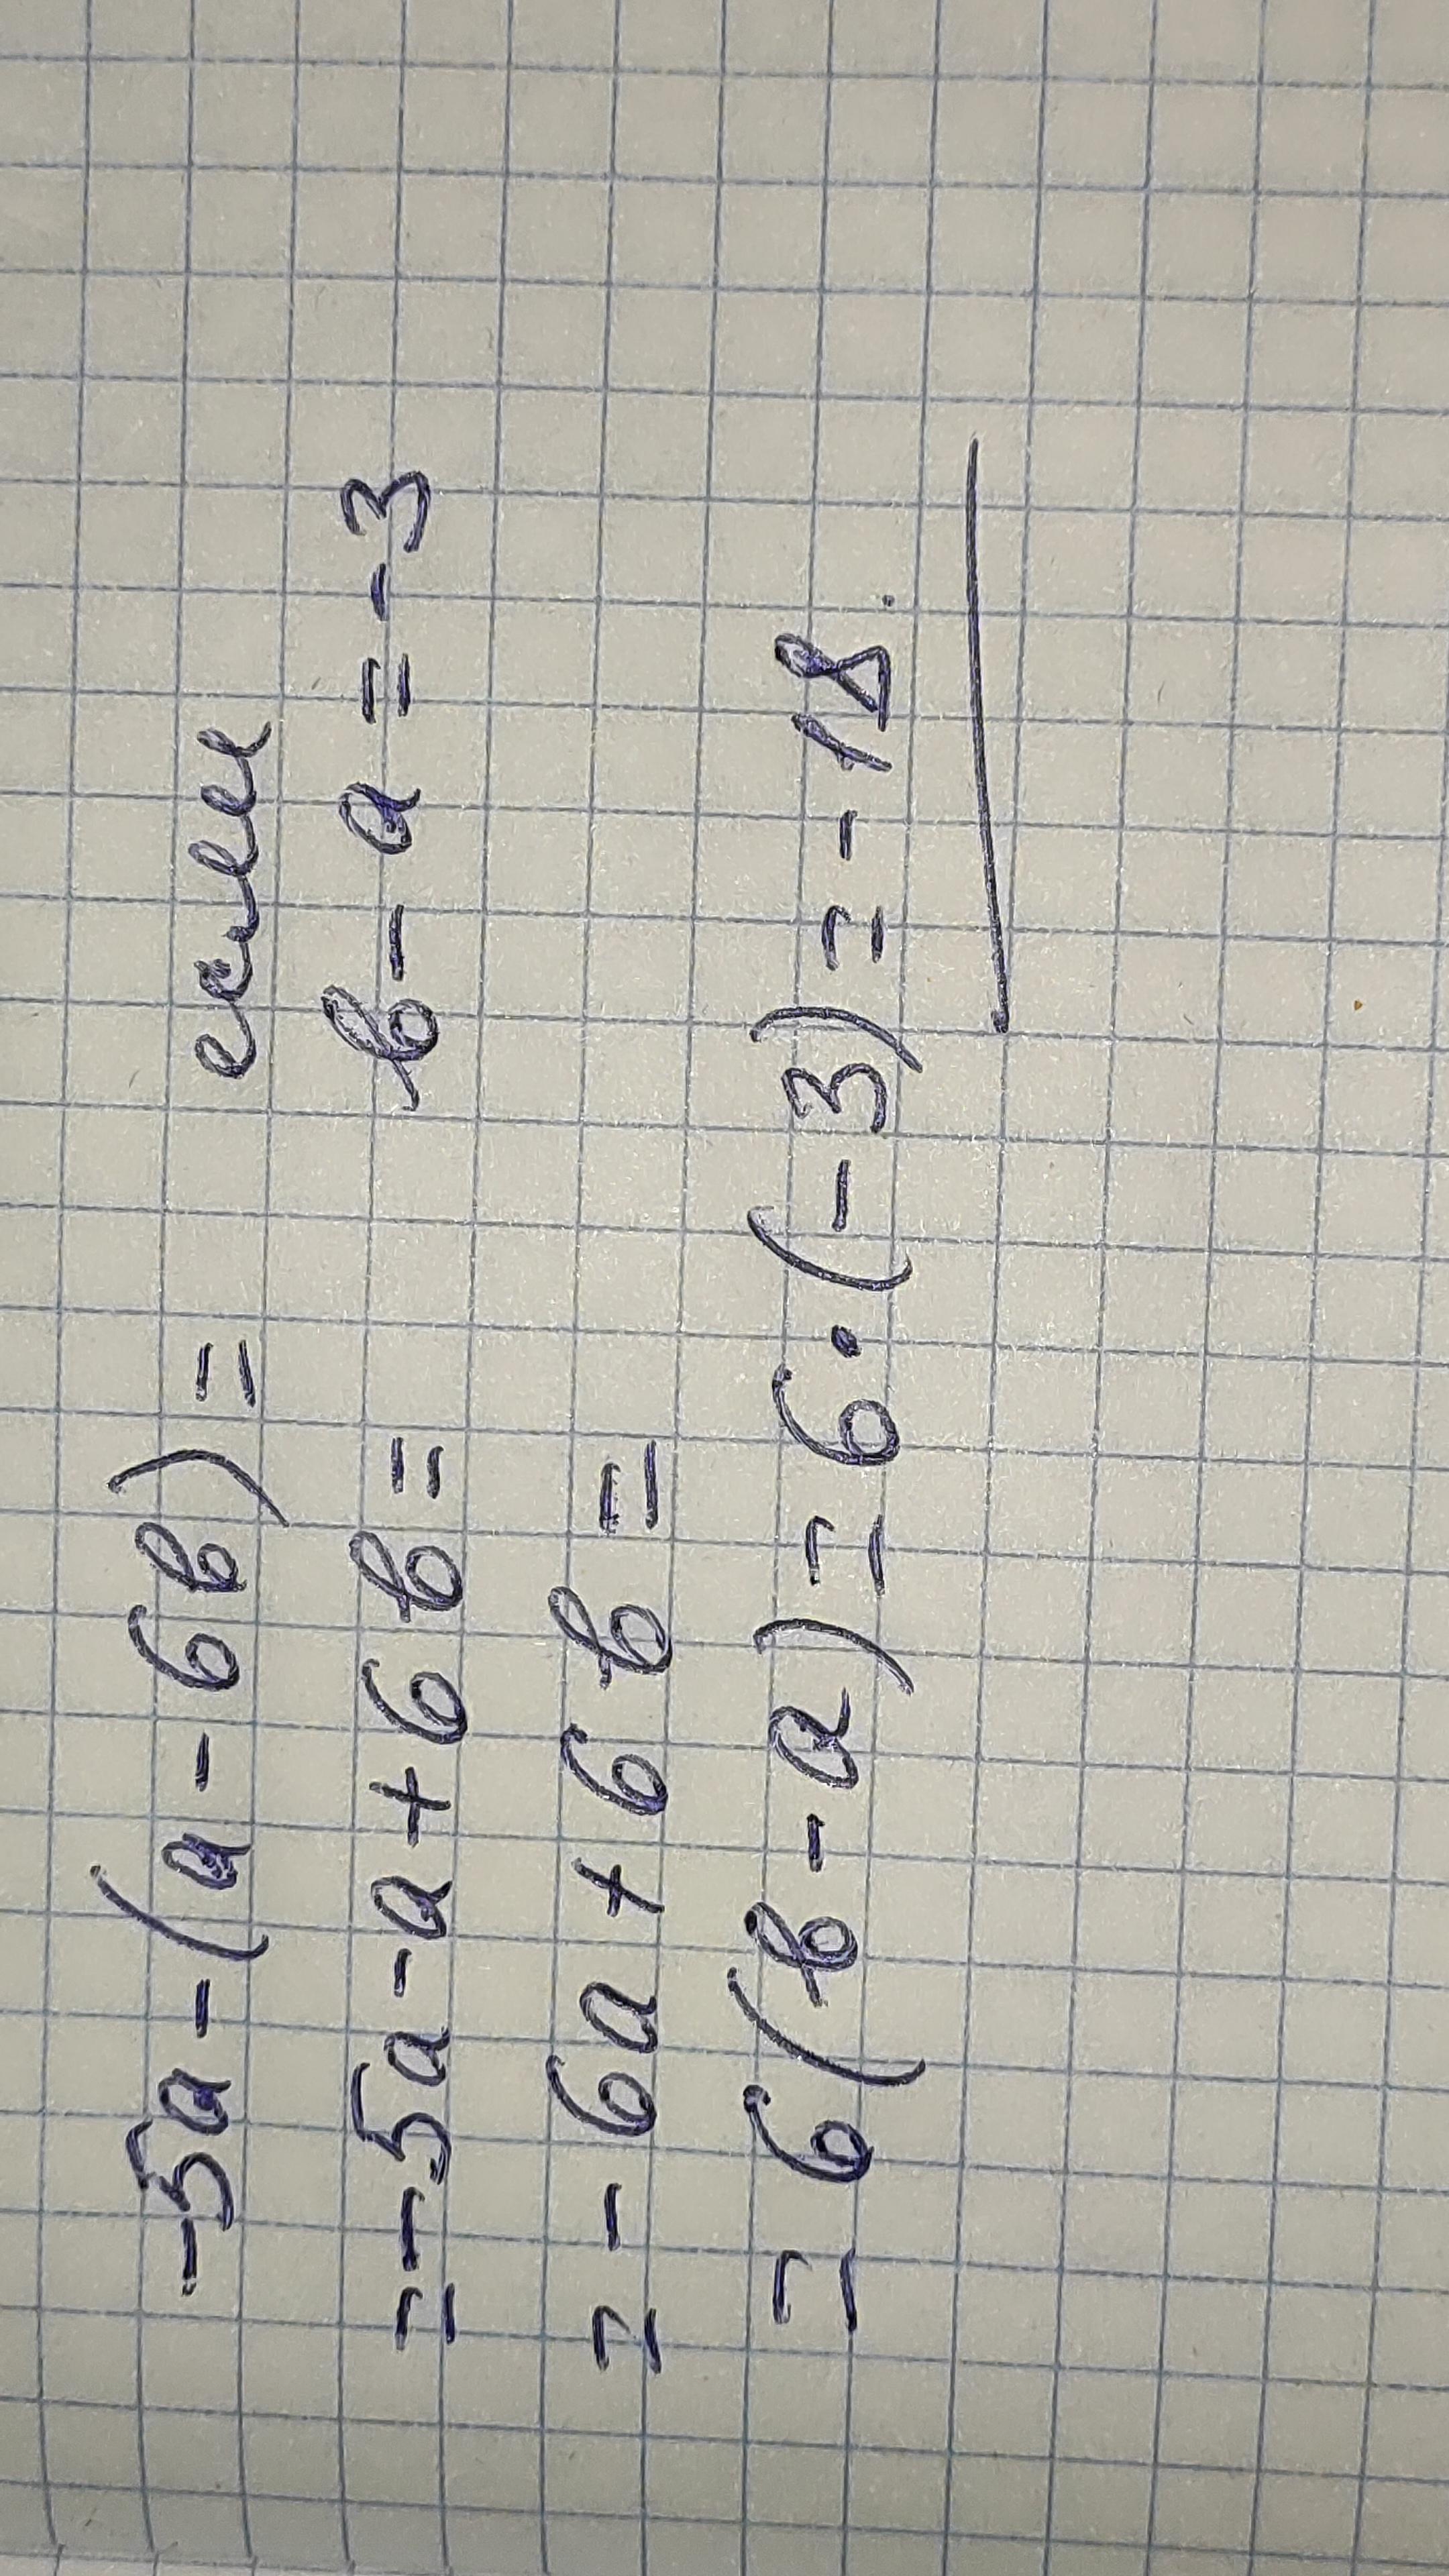 -5a-(a-6в)= если
=-5a-a+6в= в-a=-3
=-6a+6в=
=6(в-a)=6·(-3)=-18.